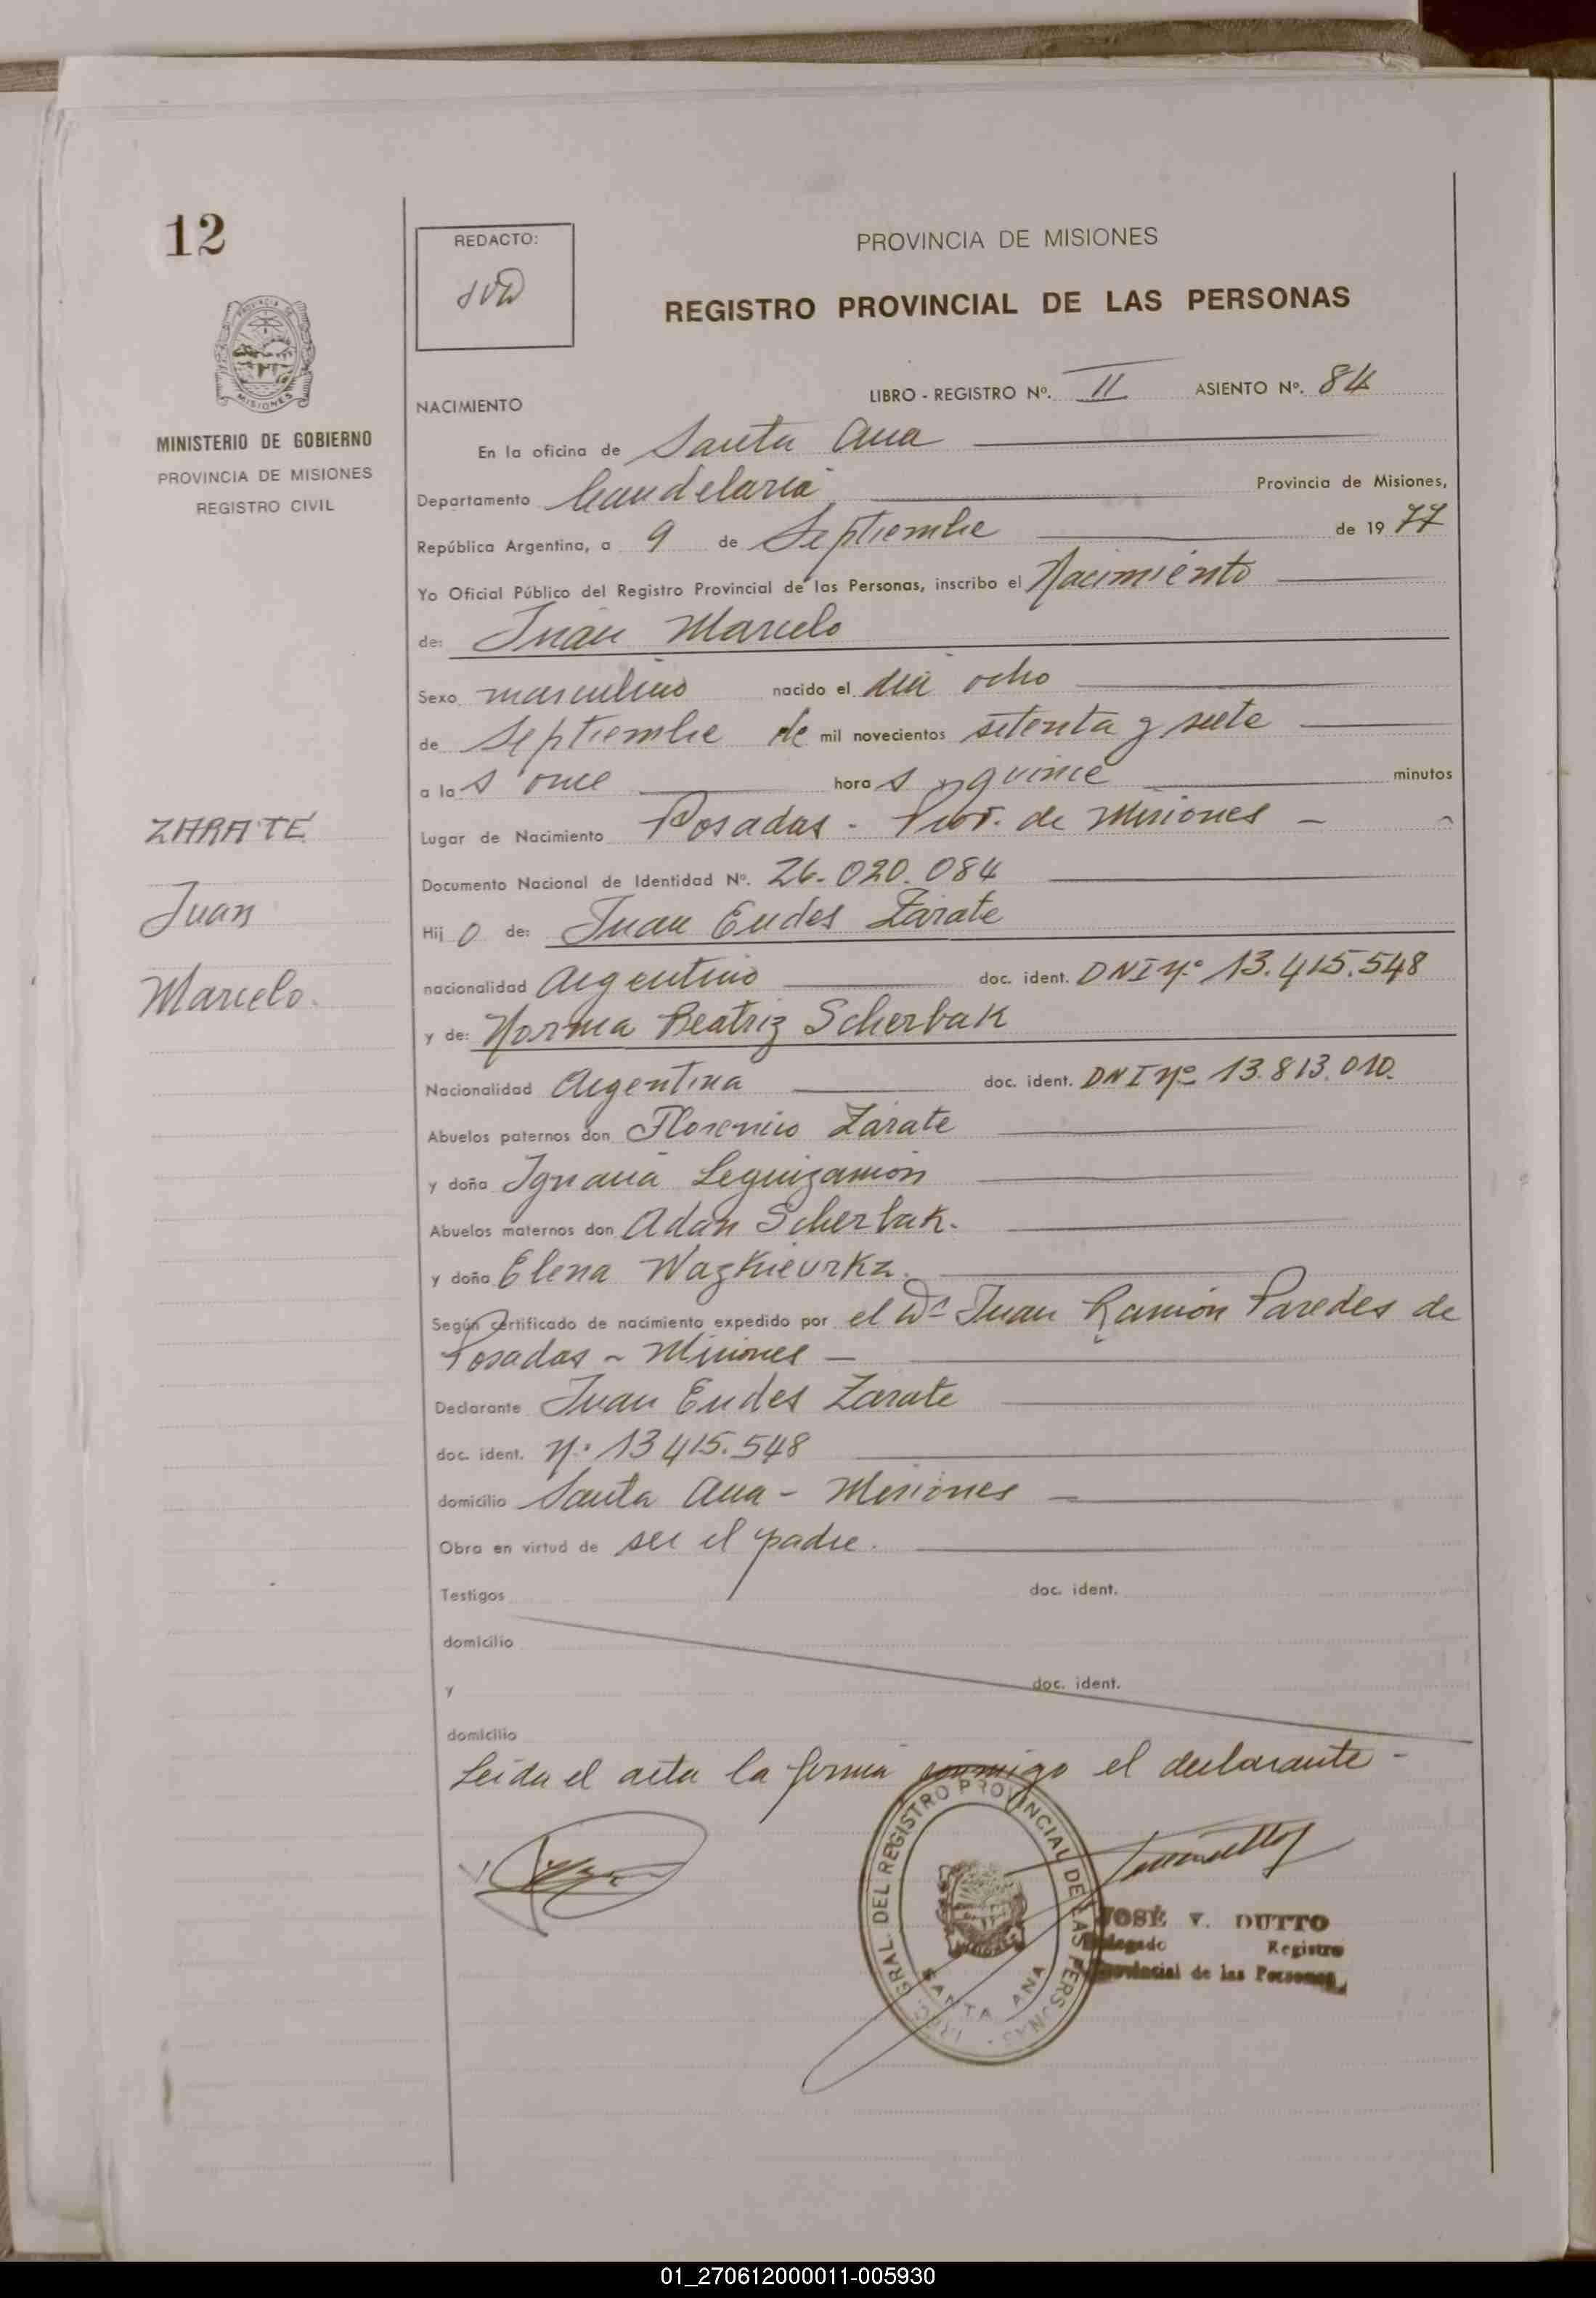 12
MINISTERIO DE GOBIERNO
PROVINCIA DE MISIONES
REGISTRO CIVIL
ZARATE
Juan
Marcelo.
REDACTO:
PROVINCIA DE MISIONES
REGISTRO PROVINCIAL DE LAS PERSONAS
LIBRO - REGISTRO Nº. II ASIENTO Nº. 84
NACIMIENTO
En la oficina de Santa Ana
Departamento Candelaria Provincia de Misiones,
República Argentina, a 9 de Septiembre de 1977
Yo Oficial Público del Registro Provincial de las Personas, inscribo el Nacimiento
de: Juan Marcelo
Sexo masculino nacido el día ocho
de Septiembre de mil novecientos setenta y siete
a las once horas quince minutos
Lugar de Nacimiento Posadas - Prov. de Misiones -
Documento Nacional de Identidad Nº. 26.020.084
Hijo de: Juan Eudes Zárate
nacionalidad Argentino doc. ident. DNI Nº 13.415.548
y de: Norma Beatriz Scherbak
Nacionalidad Argentina doc. ident. DNI Nº 13.813.010.
Abuelos paternos don Florencio Zárate
y doña Ignacia Leguizamón
Abuelos maternos don Adán Scherbak.
y doña Elena
Según certificado de nacimiento expedido por el Juan Ramón Paredes de
Posadas - Misiones -
Declarante Juan Eudes Zarate
doc. ident. Nº 13 415.548
domicilio Santa Ana - Misiones
Obra en virtud de ser el padre.
Testigos doc. ident.
domicilio
y doc. ident.
domicilio
Leída el acta la firma conmigo el declarante -
GRAL. DEL REGISTRO PROVINCIAL DE LAS PERSONAS
SANTA ANA
MISIONES
JOSÉ V. DUTTO
Delegado Registro
Provincial de las Personas
01_270612000011-005930